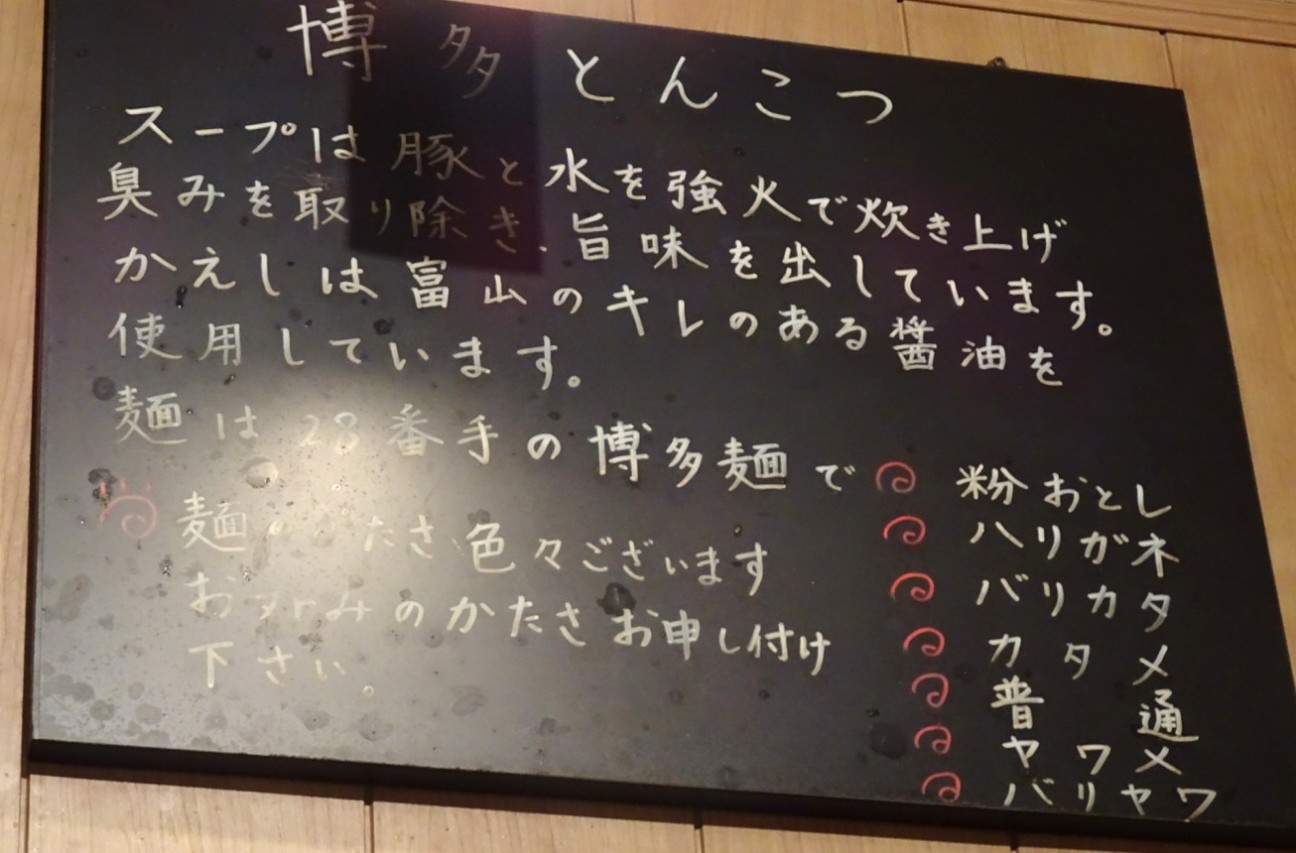 博多とんこつ
スープは豚と水を強火で炊き上げ
臭みを取り除き、旨味を出しています。
かえしは富山のキレのある醤油を
使用しています。
麺は28番手の博多麺で
麺のかたさ色々ございます
おすみのかたさお申し付け
下さい。
粉おとし
ハリガネ
バリカタ
カタメ
普通
ヤワメ
バリヤワ